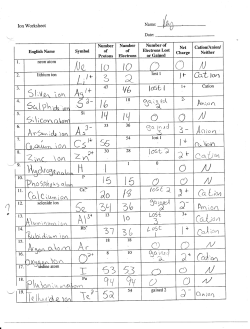 Ion Worksheet
Name:
Date:
English Name | Symbol | Number of Protons | Number of Electrons | Number of Electrons Lost or Gained | Net Charge | Cation/Anion/Neither
1. neon atom | Ne | 10 | 10 | 0 | 0 | N
2. lithium ion | Li 1+ | 3 | 2 | lost 1 | 1+ | Cation
3. Silver ion | Ag 1+ | 47 | 46 | lost 1 | 1+ | Cation
4. Sulphide | S 2- | 16 | 18 | gained 2 | 2- | Anion
5. Silicon atom | Si | 14 | 14 | 0 | 0 | N
6. Arsenide ion | As 3- | 33 | 36 | gained 3 | 3- | Anion
7. ion | 55 | 54 | lost 1 | 1+ | Cation
8. Zinc ion | Zn 2+ | 30 | 28 | lost 2 | 2+ | Cation
9. Hydrogen | H | 0 | N
10. | P | 15 | 15 | 0 | 0 | N
11. Calcium ion | 20 | 18 | lost 2 | 2+ | Cation
12. ion | Se | 34 | 36 | gained 2 | 2- | Anion
13. ion | Al 3+ | 13 | 10 | Lost 3 | 3+ | Cation
14. Rubidium ion | 37 | 36 | Lost 1 | 1+ | Cation
15. Argon atom | Ar | 18 | 18 | 0 | 0 | N
16. | O 2+ | 8 | 10 | gained 2 | Cation
17. atom | I | 53 | 53 | 0 | 0 | N
18. Plutonium | 94 | 94 | 0 | 0 | N
19. Telluride ion | Te 2- | 52 | 54 | gained 2 | 2- | Anion
?